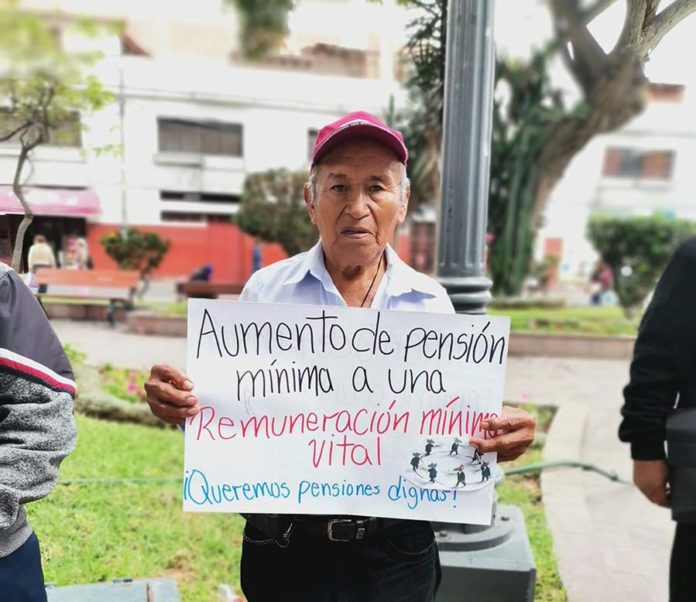 Aumento de pensión
mínima a una
Remuneración mínima
vital
¡Queremos pensiones dignas!